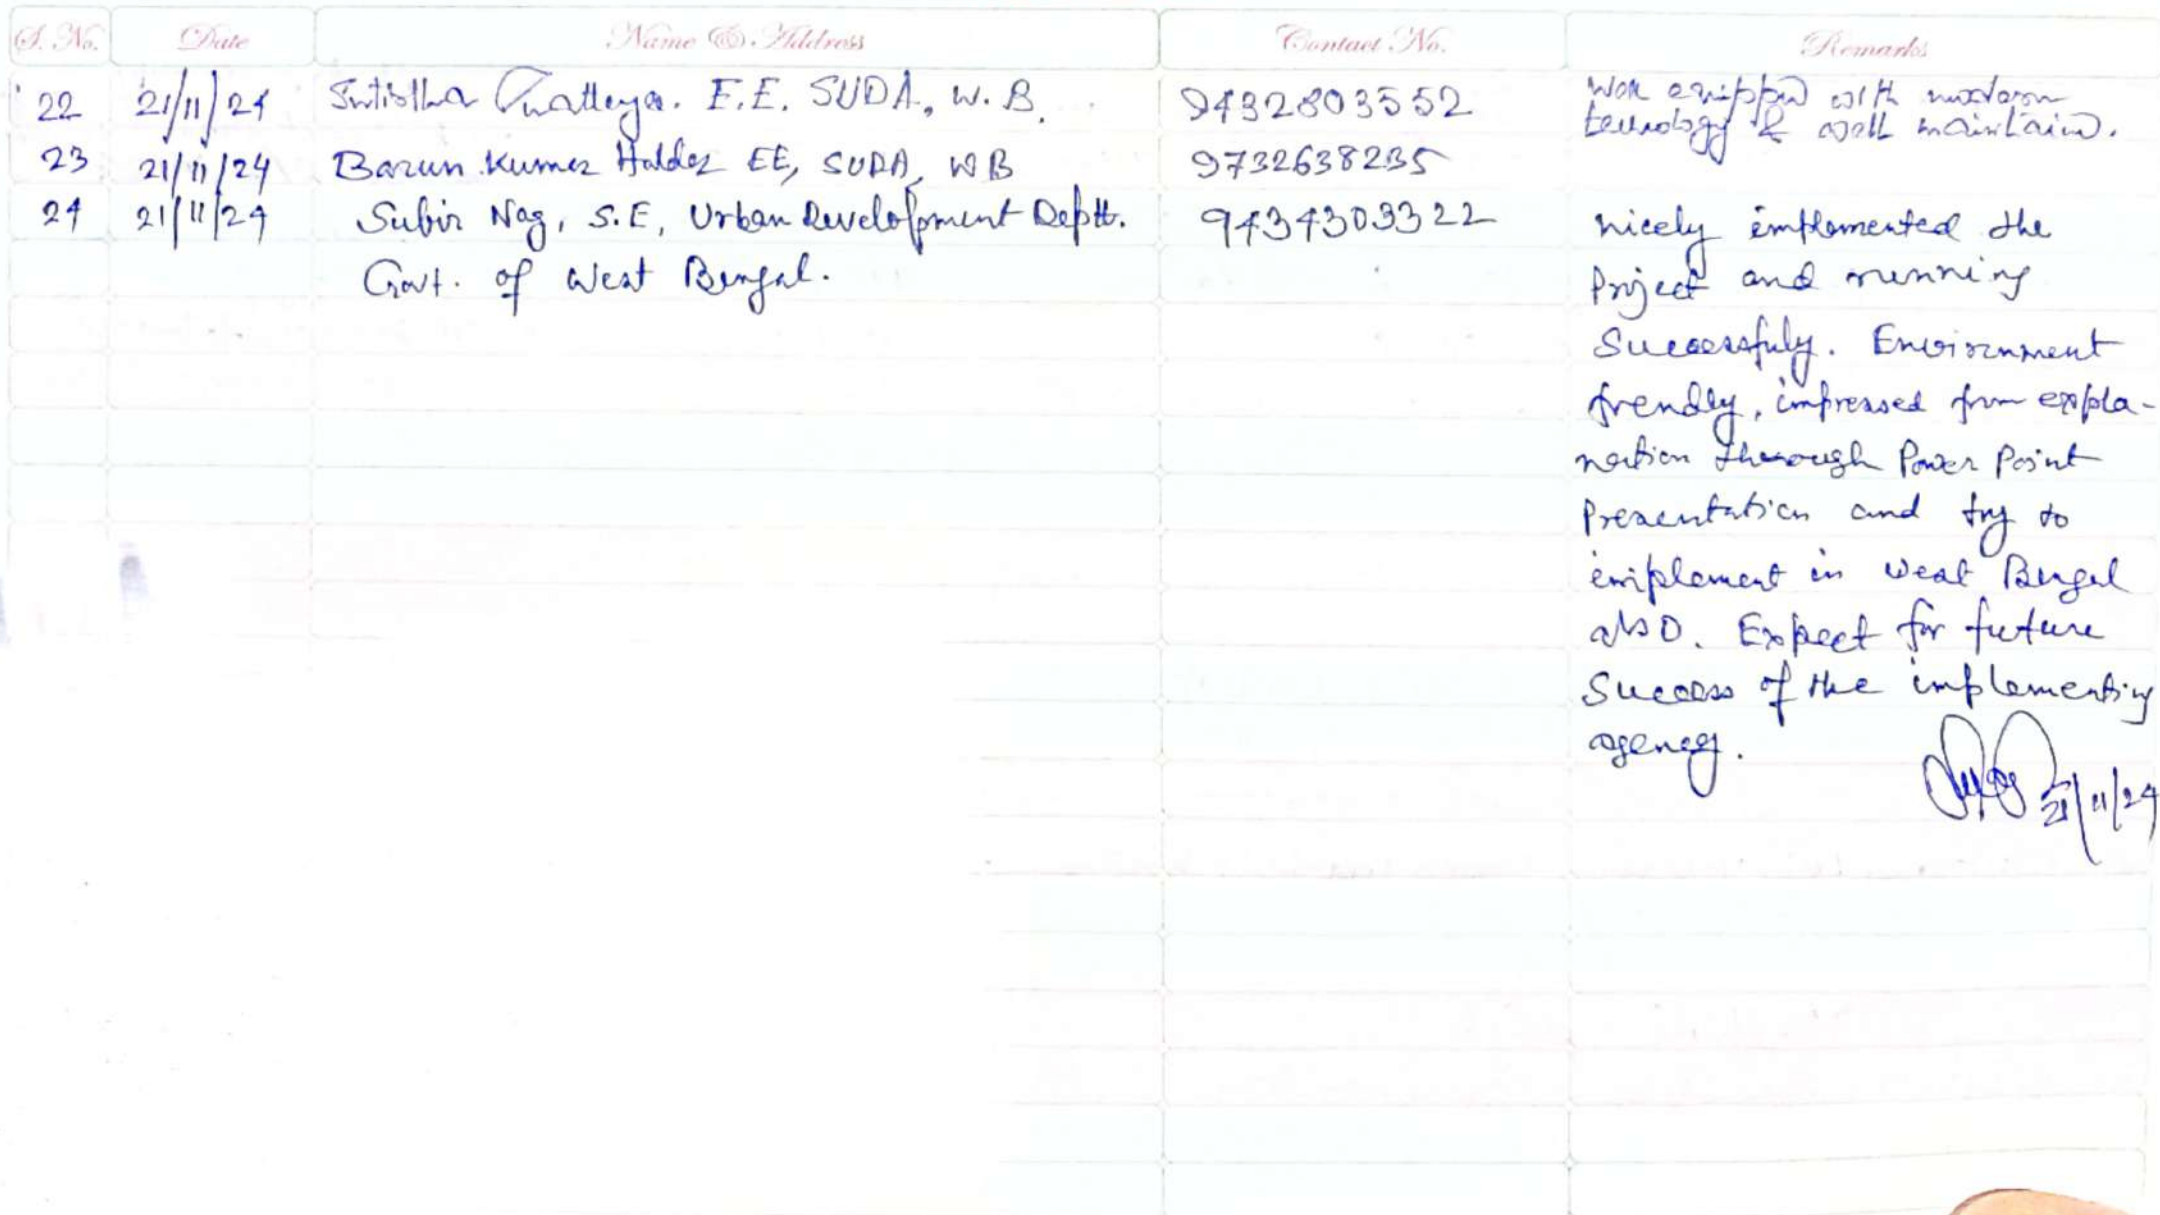 S. No. Date Name & Address Contact No. Remarks
22 21/11/24 E.E. SUDA, W.B. 9432803552 well equipped with modern
technology & well maintain.
23 21/11/24 Barun Kumar Halder EE, SUDA, WB 9732638235
24 21/11/24 Subir Nag, S.E, Urban Development Deptt. 9434303322 nicely implemented the
Govt. of West Bengal. Project and running
Successfuly. Envirnment
frendly, impressed from expla-
nation through Power Point
Presentation and try to
implement in West Bengal
also. Expect for future
Success of the implementing
agency.
21/11/24